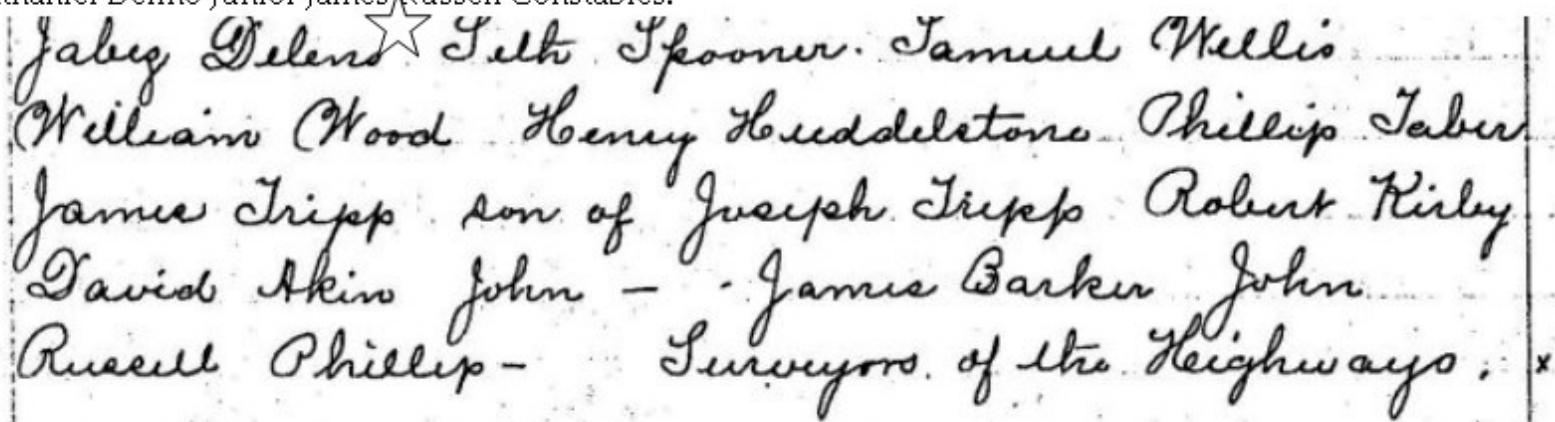 Junior James Russell Constables.
Jabez Deleno Seth Spooner. Samuel Wellis
William Wood Henry Huddelstone Phillip Taber
James Tripp son of Joseph Tripp Robert Kirby
David Akin John - - James Barker John
Russell Phillip- Surveyors of the Heighways. x